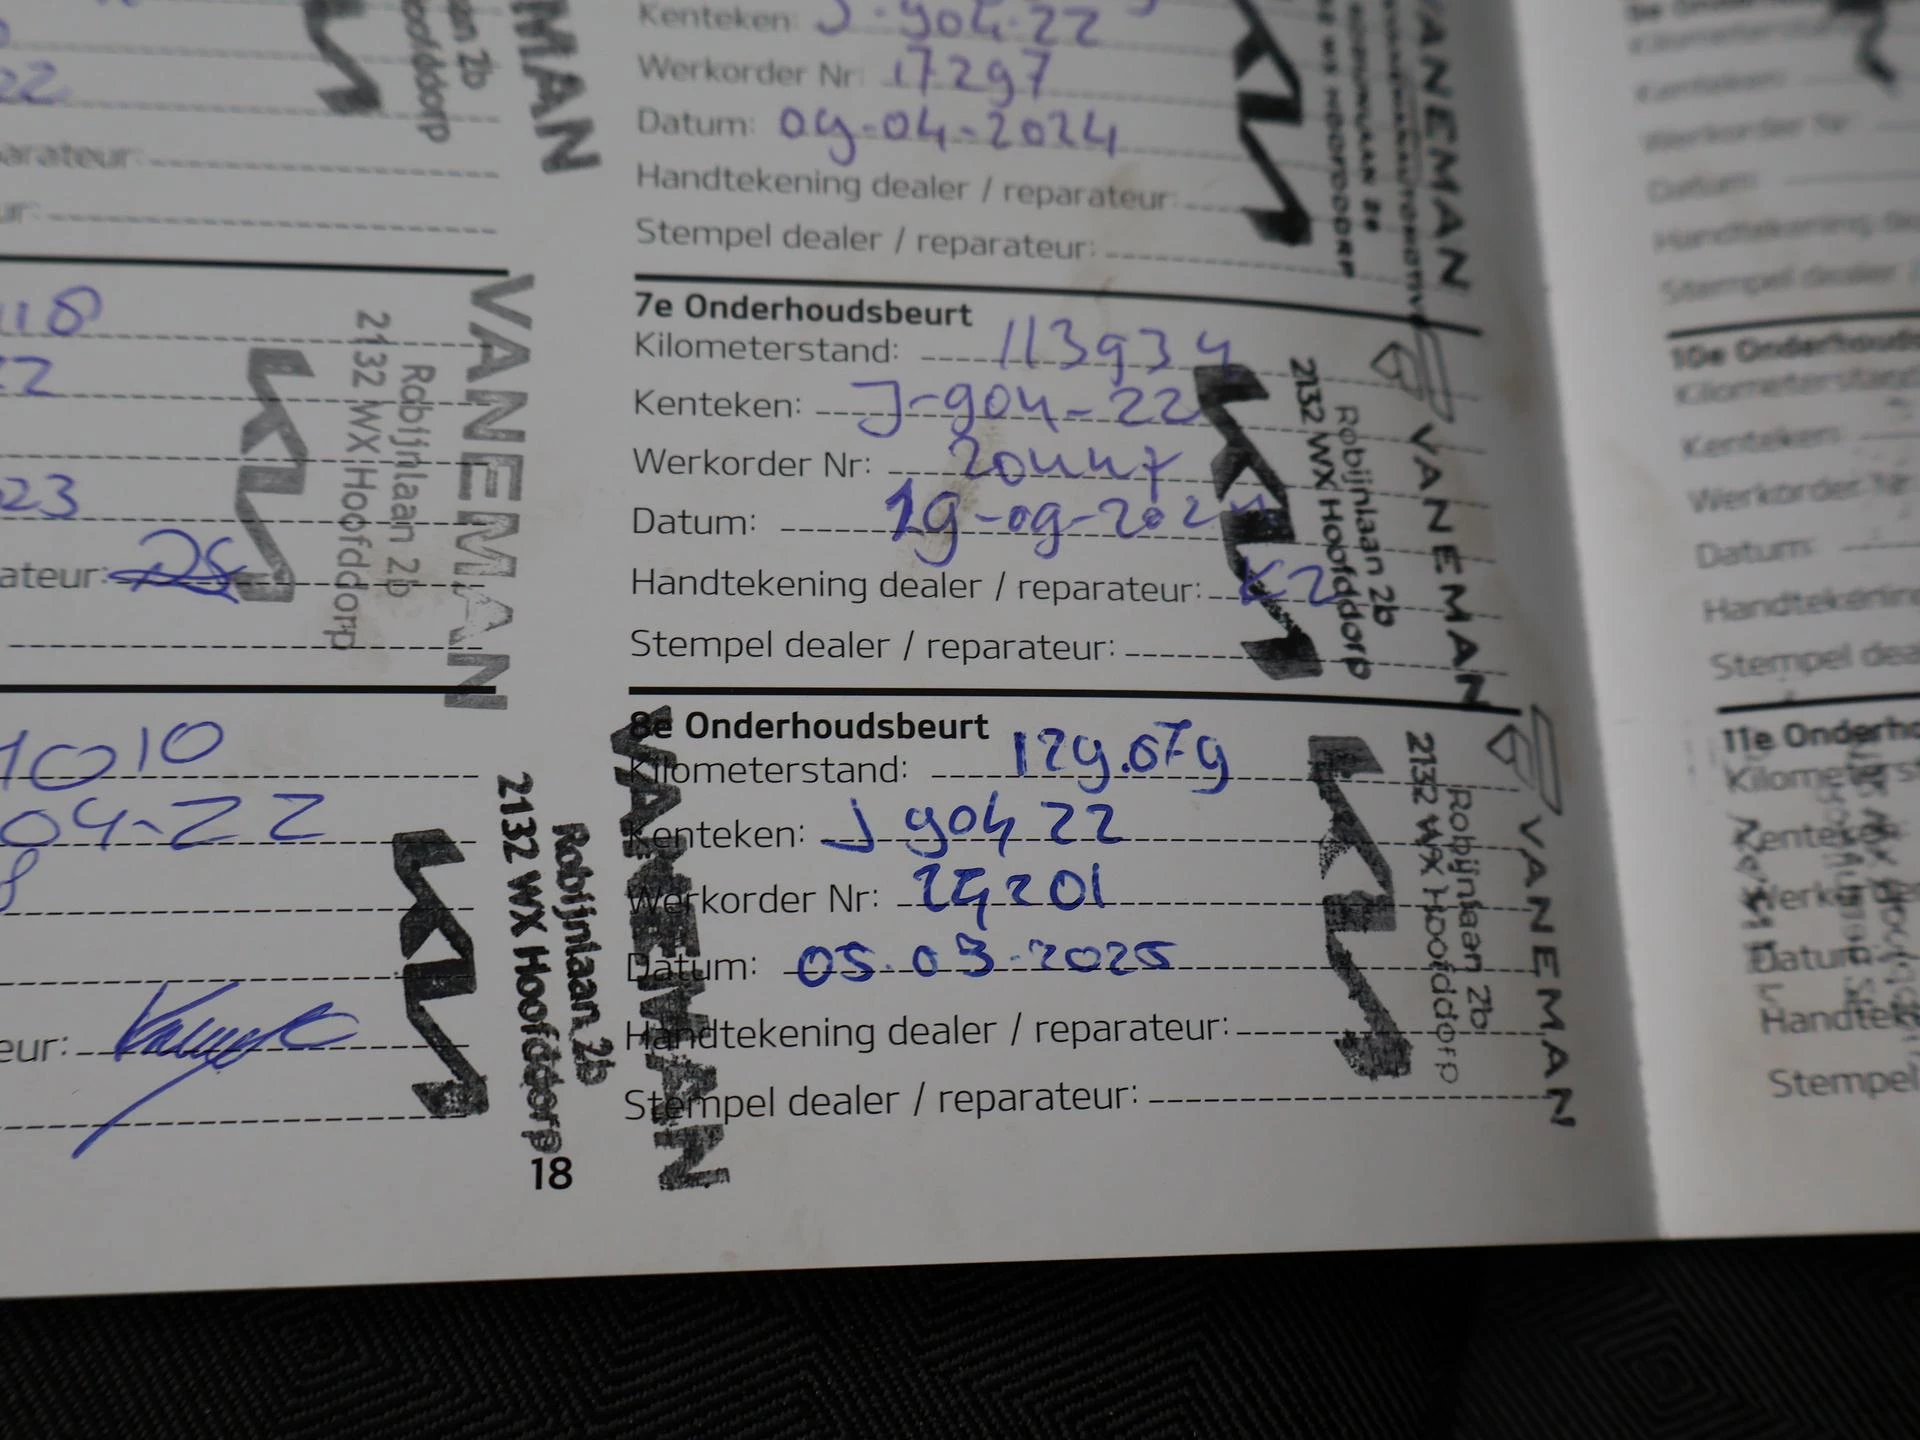 22
arateur:
ur:
118
22
23
ateur:
1010
04-22
eur:
MAN
2b
Hoofddorp
VANEMAN
Robijnlaan 2b
2132 WX Hoofddorp
VANEMAN
Robijnlaan 2b
2132 WX Hoofddorp
18
Kenteken: J-904-22
Werkorder Nr: 17297
Datum: 09-04-2024
Handtekening dealer / reparateur:
Stempel dealer / reparateur:
VANEMAN
7e Onderhoudsbeurt
Kilometerstand: 113934
Kenteken: J-904-22
Werkorder Nr: 20447
Datum: 19-09-2024
Handtekening dealer / reparateur:
Stempel dealer / reparateur:
VANEMAN
Robijnlaan 2b
2132 WX Hoofddorp
8e Onderhoudsbeurt
Kilometerstand: 129.679
Kenteken: J 904 22
Werkorder Nr: 24201
Datum: 05.03.2025
Handtekening dealer / reparateur:
Stempel dealer / reparateur:
VANEMAN
Robijnlaan 2b
2132 WX Hoofddorp
Kenteken:
Werkorder Nr:
Datum:
Handtekening de
Stempel dealer /
10e Onderhouds
Kilometerstand
Kenteken:
Werkorder Nr:
Datum:
Handtekening
Stempel deal
11e Onderho
Kilometerst
Kenteken
Werkorder
Datum
Handtek
Stempel